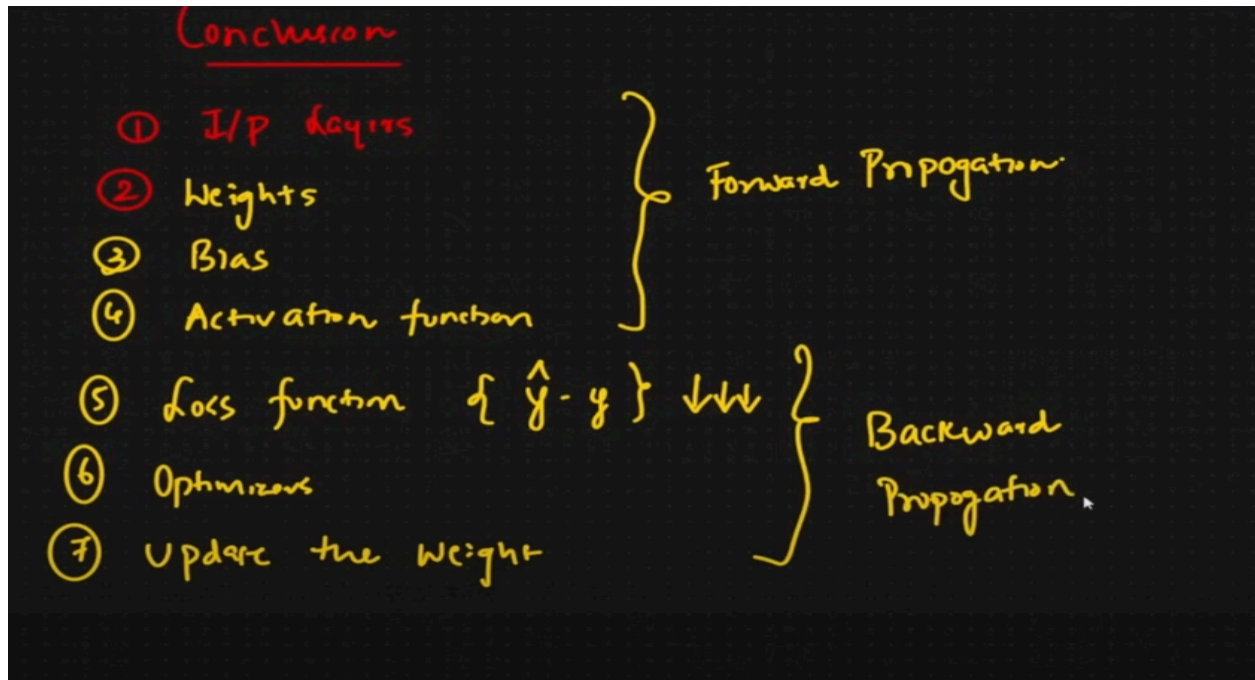 Conclusion
① I/P Layers
② Weights
③ Bias
④ Activation function
Forward Propogation
⑤ Loss function { ŷ - y } ↓↓↓
⑥ Optimizers
⑦ Update the weight
Backward
Propogation